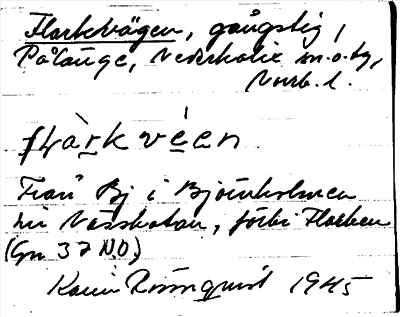 Flarkevägen, gångstig,
Pålänge, Nederkalix sn. o. tg,
Nurb. l.
flàrk véen
Från Bj i Björnholmen
till Nässkatan, förbi Flarken
(Gn 37 N.O.)
Karin Rönnquist 1945